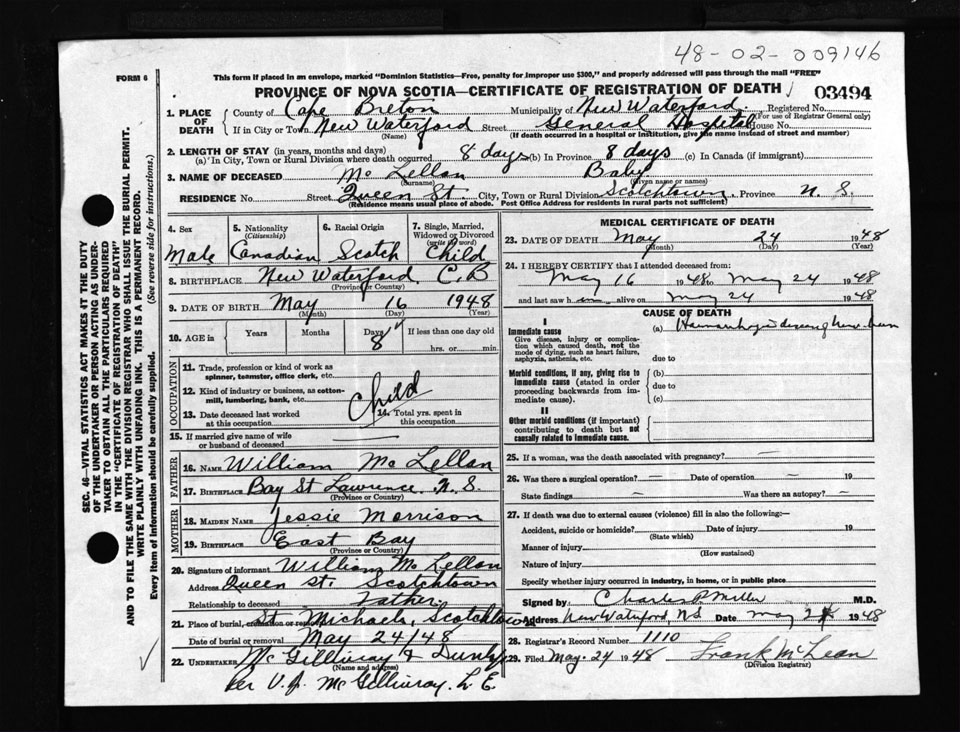 48-02-009146
FORM 6
This form if placed in an envelope, marked "Dominion Statistics—Free, penalty for improper use $300," and properly addressed will pass through the mail "FREE"
PROVINCE OF NOVA SCOTIA—CERTIFICATE OF REGISTRATION OF DEATH √ 03494
1. PLACE OF DEATH County of Cape Breton Municipality of New Waterford Registered No.
(For use of Registrar General only)
If in City or Town New Waterford (Name) Street General Hospital House No.
(If death occurred in a hospital or institution, give the name instead of street and number)
2. LENGTH OF STAY (in years, months and days)
(a) In City, Town or Rural Division where death occurred 8 days (b) In Province 8 days (c) In Canada (if immigrant)
3. NAME OF DECEASED McLellan (Surname) Baby (Given name or names)
RESIDENCE No. Street Queen St. City, Town or Rural Division Scotchtown, Province N.S.
(Residence means usual place of abode. Post Office Address for residents in rural parts not sufficient)
4. Sex Male
5. Nationality (Citizenship) Canadian
6. Racial Origin Scotch
7. Single, Married, Widowed or Divorced (write the word) Child
8. BIRTHPLACE New Waterford, C.B (Province or Country)
9. DATE OF BIRTH May (Month) 16 (Day) 1948 (Year)
10. AGE in Years Months Days 8 √ If less than one day old hrs. or min.
OCCUPATION
11. Trade, profession or kind of work as spinner, teamster, office clerk, etc.
12. Kind of industry or business, as cotton-mill, lumbering, bank, etc. Child
13. Date deceased last worked at this occupation
14. Total yrs. spent in this occupation
15. If married give name of wife or husband of deceased —
FATHER
16. NAME William McLellan
17. BIRTHPLACE Bay St Lawrence. N.S. (Province or Country)
MOTHER
18. MAIDEN NAME Jessie Morrison
19. BIRTHPLACE East Bay (Province or Country)
20. Signature of informant William McLellan
Address Queen St. Scotchtown
Relationship to deceased Father.
21. Place of burial, cremation or removal St Michaels, Scotchtown
Date of burial or removal May 24/48
22. UNDERTAKER McGillivray & Dunly (Name and address)
Per V.J. McGillivray. L.E.
MEDICAL CERTIFICATE OF DEATH
23. DATE OF DEATH May (Month) 24 (Day) 1948 (Year)
24. I HEREBY CERTIFY that I attended deceased from:
May 16 1948 to May 24 1948
and last saw h im alive on May 24 1948
CAUSE OF DEATH
I
Immediate cause
Give disease, injury or complication which caused death, not the mode of dying, such as heart failure, asphyxia, asthenia, etc.
(a)
due to
Morbid conditions, if any, giving rise to immediate cause (stated in order proceeding backwards from immediate cause).
(b)
due to
(c)
II
Other morbid conditions (if important) contributing to death but not causally related to immediate cause.
25. If a woman, was the death associated with pregnancy? —
26. Was there a surgical operation? — Date of operation — 19
State findings — Was there an autopsy? —
27. If death was due to external causes (violence) fill in also the following:—
Accident, suicide or homicide? Date of injury 19
(State which)
Manner of injury
(How sustained)
Nature of injury
Specify whether injury occurred in industry, in home, or in public place
Signed by Charles P. Miller M.D.
Address New Waterford, NS Date May 24 1948
28. Registrar's Record Number 1110
29. Filed May. 24 1948 Frank McLean
(Division Registrar)
SEC. 46—VITAL STATISTICS ACT MAKES IT THE DUTY
OF THE UNDERTAKER OR PERSON ACTING AS UNDERTAKER TO OBTAIN ALL THE PARTICULARS REQUIRED
IN THE "CERTIFICATE OF REGISTRATION OF DEATH"
AND TO FILE THE SAME WITH THE DIVISION REGISTRAR WHO SHALL ISSUE THE BURIAL PERMIT.
WRITE PLAINLY WITH UNFADING INK. THIS IS A PERMANENT RECORD.
Every item of information should be carefully supplied. (See reverse side for instructions.)